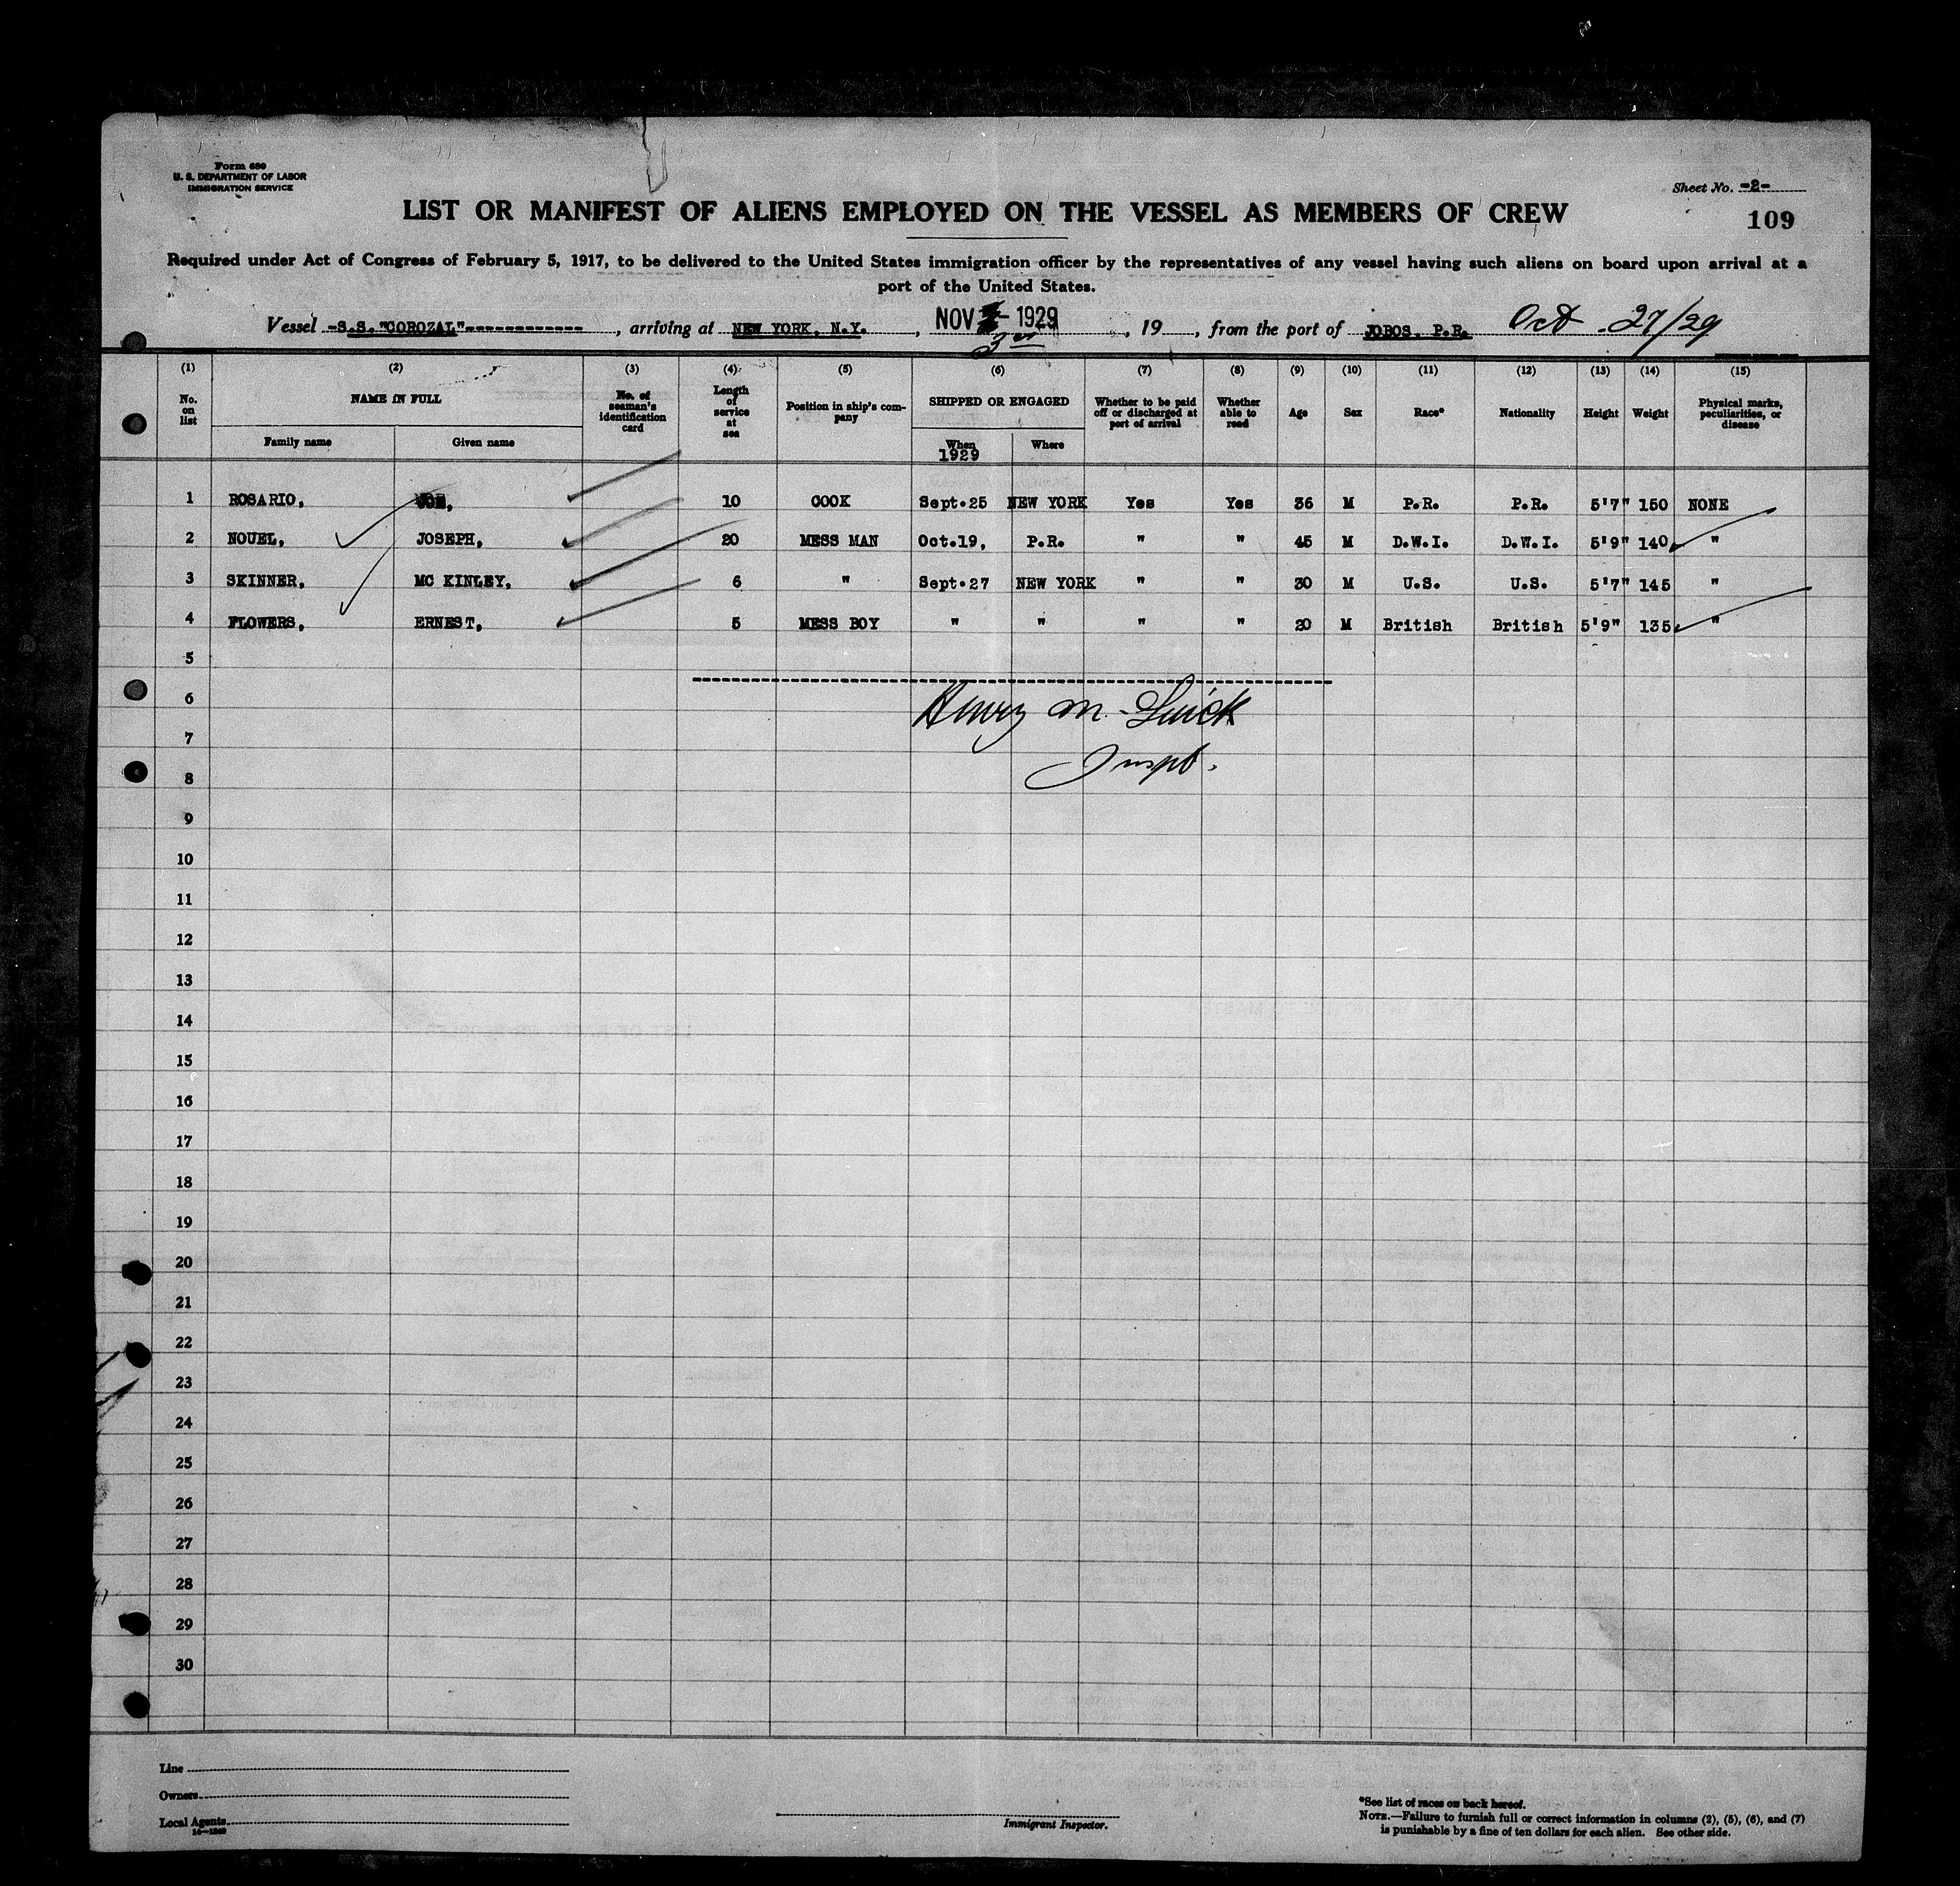 Form 689
U. S. DEPARTMENT OF LABOR
IMMIGRATION SERVICE
Sheet No. -2-
LIST OR MANIFEST OF ALIENS EMPLOYED ON THE VESSEL AS MEMBERS OF CREW
109
Required under Act of Congress of February 5, 1917, to be delivered to the United States immigration officer by the representatives of any vessel having such aliens on board upon arrival at a
port of the United States.
Vessel -S.S."COROZAL"------------, arriving at NEW YORK, N.Y. , NOV - 1929 , 19 , from the port of JOBOS, P.R. Oct. 27/29
3rd
(1) (2) (3) (4) (5) (6) (7) (8) (9) (10) (11) (12) (13) (14) (15)
No. on list
NAME IN FULL
Family name Given name
No. of seaman's identification card
Length of service at sea
Position in ship's company
SHIPPED OR ENGAGED
When Where
1929
Whether to be paid off or discharged at port of arrival
Whether able to read
Age Sex Race* Nationality Height Weight
Physical marks, peculiarities, or disease
1 ROSARIO, 10 COOK Sept.25 NEW YORK Yes Yes 36 M P.R. P.R. 5'7" 150 NONE
2 NOUEL, JOSEPH, 20 MESS MAN Oct.19, P.R. " " 45 M D.W.I. D.W.I. 5'9" 140 "
3 SKINNER, MC KINLEY, 6 " Sept.27 NEW YORK " " 30 M U.S. U.S. 5'7" 145 "
4 FLOWERS, ERNEST, 5 MESS BOY " " " " 20 M British British 5'9" 135 "
5
6
Henry M.
7
8
Inspt.
9
10
11
12
13
14
15
16
17
18
19
20
21
22
23
24
25
26
27
28
29
30
Line
Owners
Local Agents
Immigrant Inspector.
*See list of races on back hereof.
NOTE.—Failure to furnish full or correct information in columns (2), (5), (6), and (7)
is punishable by a fine of ten dollars for each alien. See other side.